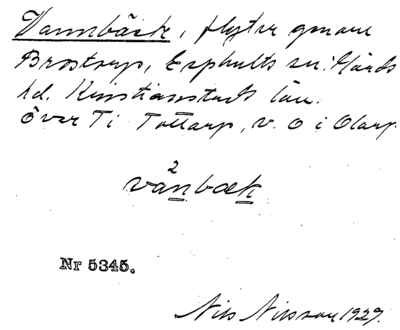 Vannbäck, flyter genom
Brostorp, Esphults sn. Gärds
hd. Kristianstads län.
Över T i Tottarp, v. O i Olarp
2
vanbæk
Nr 5345.
Nils Nilsson 1929.